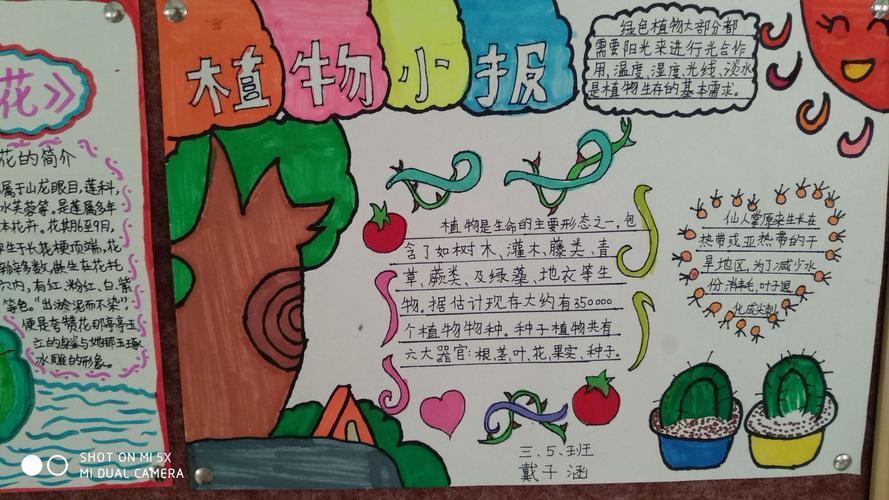 花》
花的简介
属于山龙眼目,莲科,
水芙蓉等。是莲属多年
本花卉。花期6至9月,
单生于长花梗顶端,花
嵌生在花托
穴内,有红、粉红、白、紫
等色。"出淤泥而不染",
便是专赞花那亭亭玉
立的身姿与她那玉琢
冰雕的形象。
植物小报
绿色植物大部分都
需要阳光来进行光合作
用,温度、湿度、光线、淡水
是植物生存的基本需求。
植物是生命的主要形态之一,包
含了如树木、灌木、藤类、青
草、蕨类、及绿藻、地衣等生
物。据估计现存大约有350000
个植物物种。种子植物共有
六大器官:根、茎、叶、花、果实、种子。
仙人掌原来生长在
热带或亚热带的干
旱地区,为了减少水
份消耗,叶子退
化成尖刺
三.5.班
戴子涵
SHOT ON MI 5X
MI DUAL CAMERA